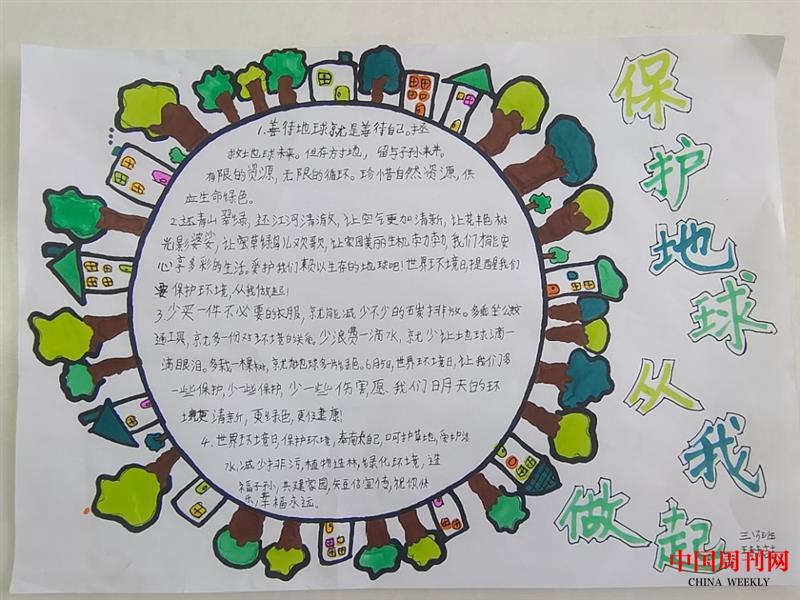 保护地球 从我
做起
1.善待地球就是善待自己,拯
救地球未来。但存方寸地,留与子孙来。
有限的资源,无限的循环。珍惜自然资源,供
生命绿色。
2.还青山翠绿,还江河清澈,让空气更加清新,让花艳树
光影婆娑,让翠草绿鸟儿欢歌,让家园美丽生机勃勃,我们才能更
心享多彩的生活。爱护我们赖以生存的地球吧!世界环境日提醒我们
要保护环境,从我做起!
3.少买一件不必要的衣服,就能减少不少的石炭排放。多乘坐公交
通工具,就多一份对环境的关爱。少浪费一滴水,就少让地球滴一
滴眼泪。多栽一棵树,就为地球多一片绿色。6月5日,世界环境日,让我们多
一些保护,少一些保护,少一些伤害愿、我们明天的环
境更清新,更绿色,更健康!
4.世界环境日,保护环境,
水,减少排污,植物造林,绿化环境,造
福子孙,共建家园,短信宣传,祝你快
乐,幸福永远。
三
中国周刊网
CHINA WEEKLY